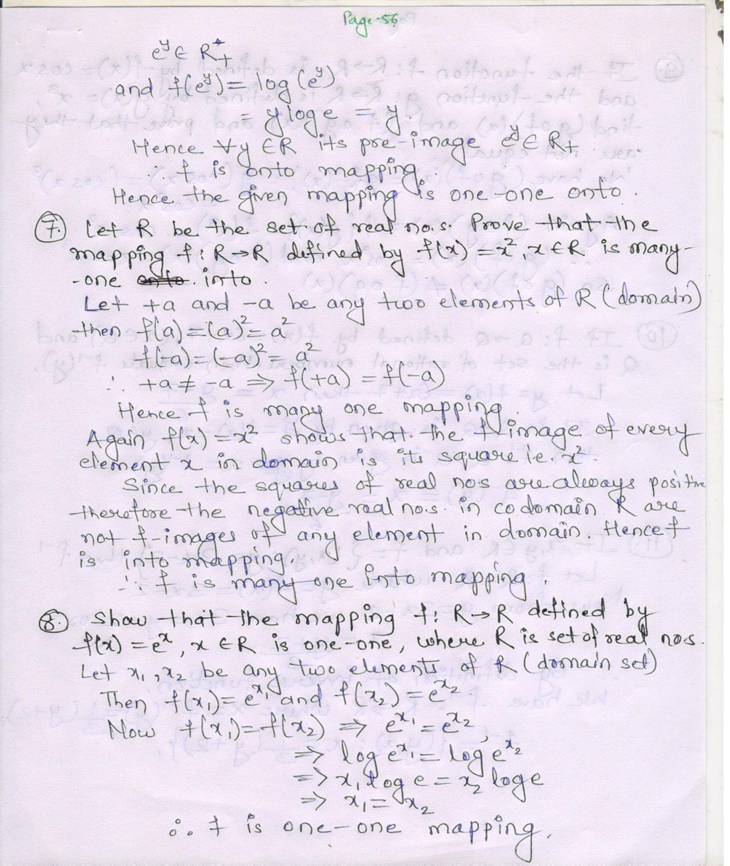 Page-56
e^y ∈ R^+_+
and f(e^y) = log (e^y)
= y log e = y
Hence ∀y ∈ R its pre-image e^y ∈ R_+
∴ f is onto mapping.
Hence the given mapping is one-one onto.
7. Let R be the set of real nos. Prove that the
mapping f: R→R defined by f(x) = x², x∈R is many-
-one into.
Let +a and -a be any two elements of R (domain)
then f(a) = (a)² = a²
f(-a) = (-a)² = a²
∴ +a ≠ -a ⇒ f(+a) = f(-a)
Hence f is many one mapping.
Again f(x) = x² shows that the f image of every
element x in domain is its square i.e. x².
Since the squares of real nos are always positive
therefore the negative real nos. in codomain R are
not f-images of any element in domain. Hence f
is into mapping.
∴ f is many one into mapping.
8. Show that the mapping f: R→R defined by
f(x) = e^x, x ∈ R is one-one, where R is set of real nos.
Let x₁, x₂ be any two elements of R (domain set)
Then f(x₁) = e^x₁ and f(x₂) = e^x₂
Now f(x₁) = f(x₂) ⇒ e^x₁ = e^x₂
⇒ log e^x₁ = log e^x₂
⇒ x₁ log e = x₂ log e
⇒ x₁ = x₂
∴ f is one-one mapping.